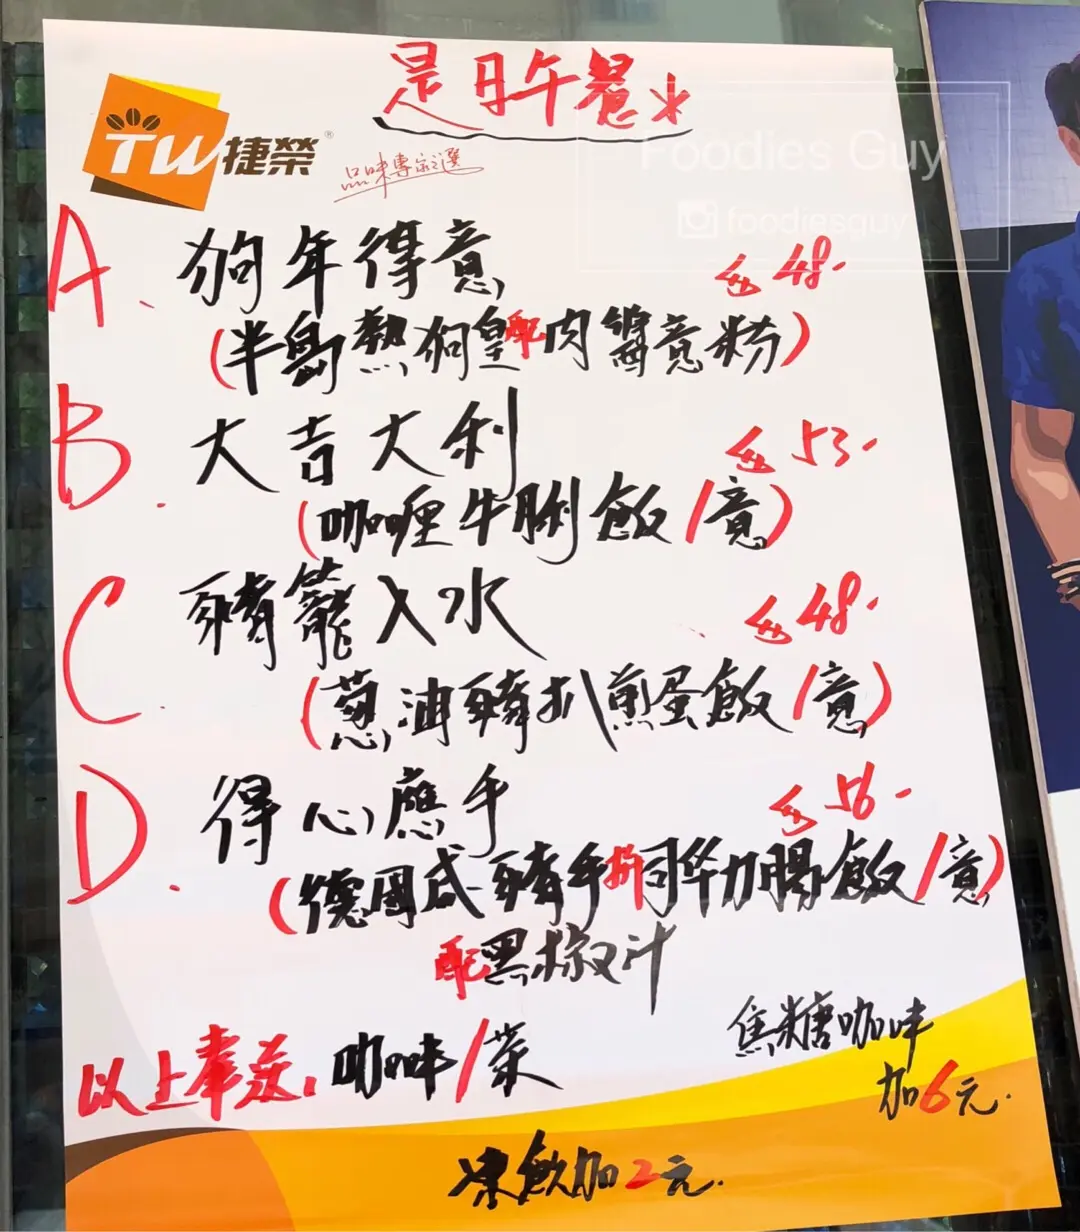 是日午餐
Foodies Guy
foodiesguy
TW捷榮®
品味專家之選
A. 狗年得意 $48.
(半島熱狗皇配肉醬意粉)
B. 大吉大利 $53.
(咖喱牛脷飯/意)
C 豬籠入水 $48.
(蔥油豬扒煎蛋飯/意)
D. 得心應手 $56.
(德國咸豬手拼同华力腸飯/意)
配黑椒汁
以上奉送: 咖啡/茶
焦糖咖啡
加6元.
凍飲加2元.